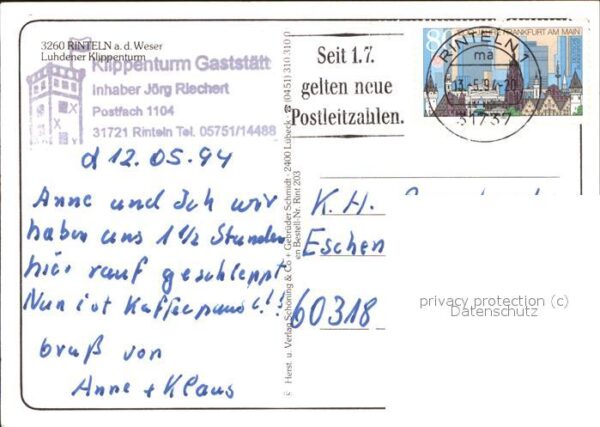 3260 RINTELN a. d. Weser
Luhdener Klippenturm
Klippenturm Gaststätt
Inhaber Jörg Riechert
Postfach 1104
31721 Rinteln Tel. 05751/14488
d 12.05.94
Anne und Ich wir
haben uns 1 1/2 Stunden
hier rauf geschleppt
Nun ist Kaffeepause!!
Gruß von
Anne + Klaus
Herst. u. Verlag Schöning & Co + Gebrüder Schmidt · 2400 Lübeck · ☎ (04 51) 310 310
Bestell-Nr. Rint 203
Seit 1.7.
gelten neue
Postleitzahlen.
80
JAHRE FRANKFURT AM MAIN
RINTELN 1
ma
13.-5.94-20
31737
K. H.
Eschen
60318
privacy protection (c)
Datenschutz